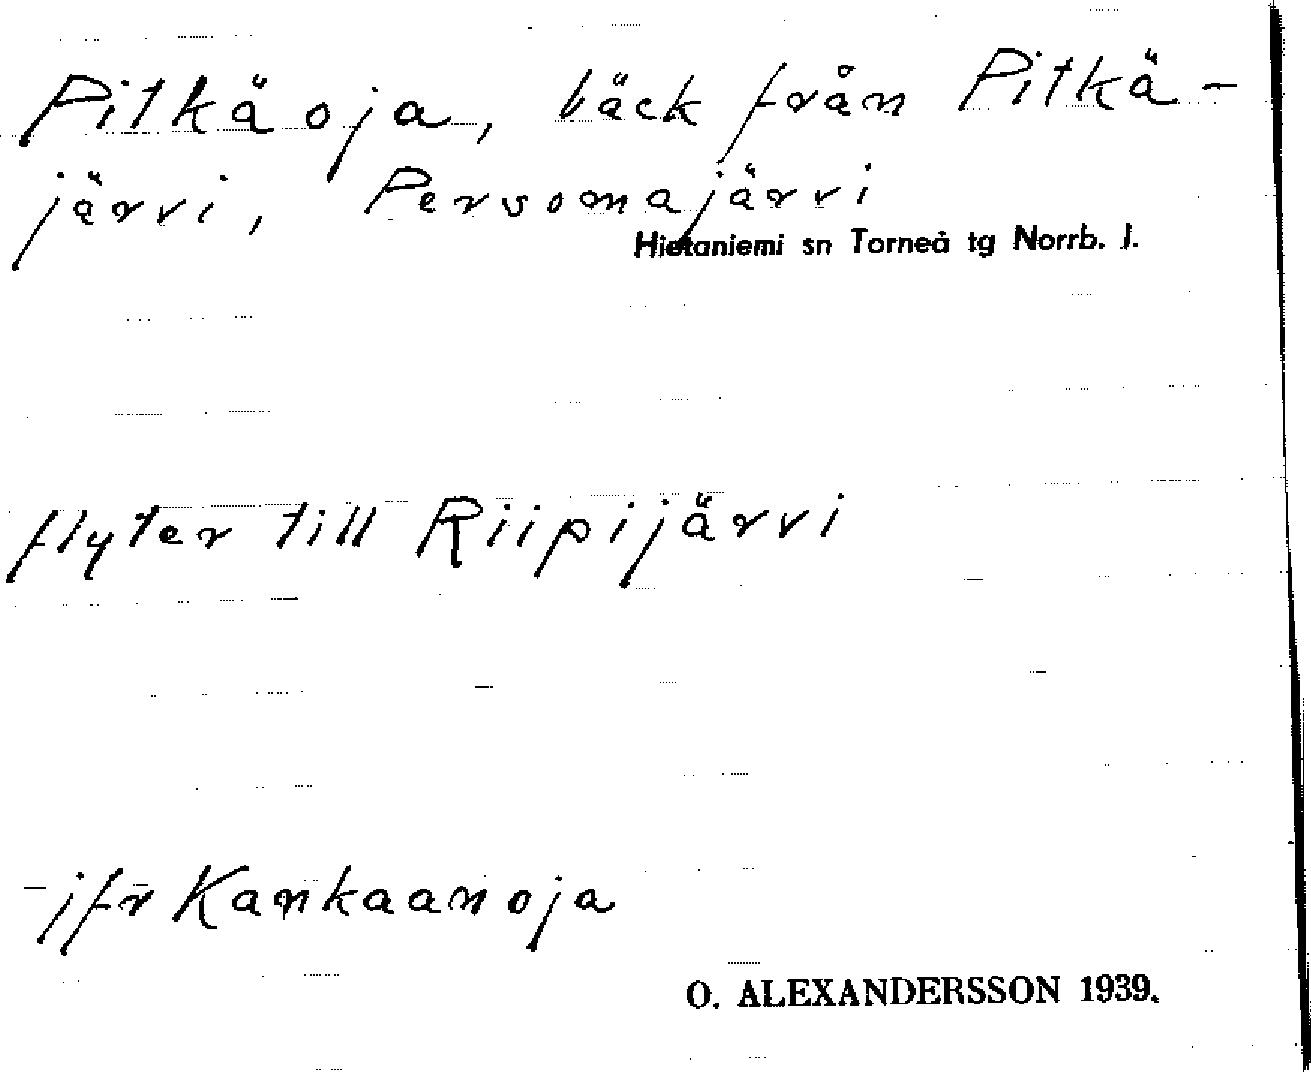 Pitkäoja, bäck från Pitkä-
järvi, Persomajärvi
Hietaniemi sn Torneå tg Norrb. l.
flyter till Riipijärvi
jfr Kankaanoja
O. ALEXANDERSSON 1939.